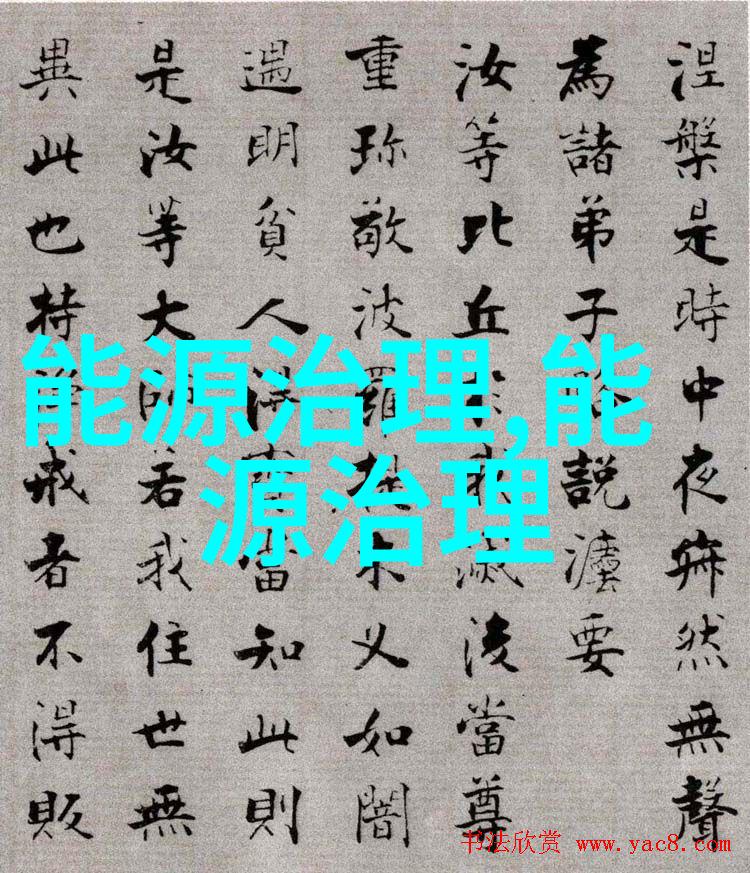 涅槃是時中夜寂然無聲
為諸弟子略說灋要
汝等比丘於我滅後當尊
重珍敬波羅提木叉如闇
遇明貧人得寶當知此則
是汝等大師若我住世無
異此也持淨戒者不得販
能源治理,能
源治理
书法欣赏 www.yac8.com